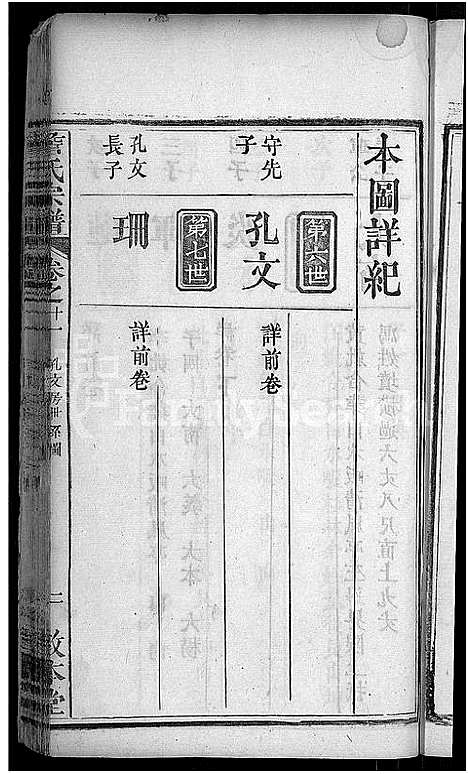 本圖詳紀
第六世
守先子
孔文
詳前卷
第七世
孔文長子
珊
詳前卷
氏宗譜
卷之十一
孔文房世系圖
二
敦本堂
FamilySearch